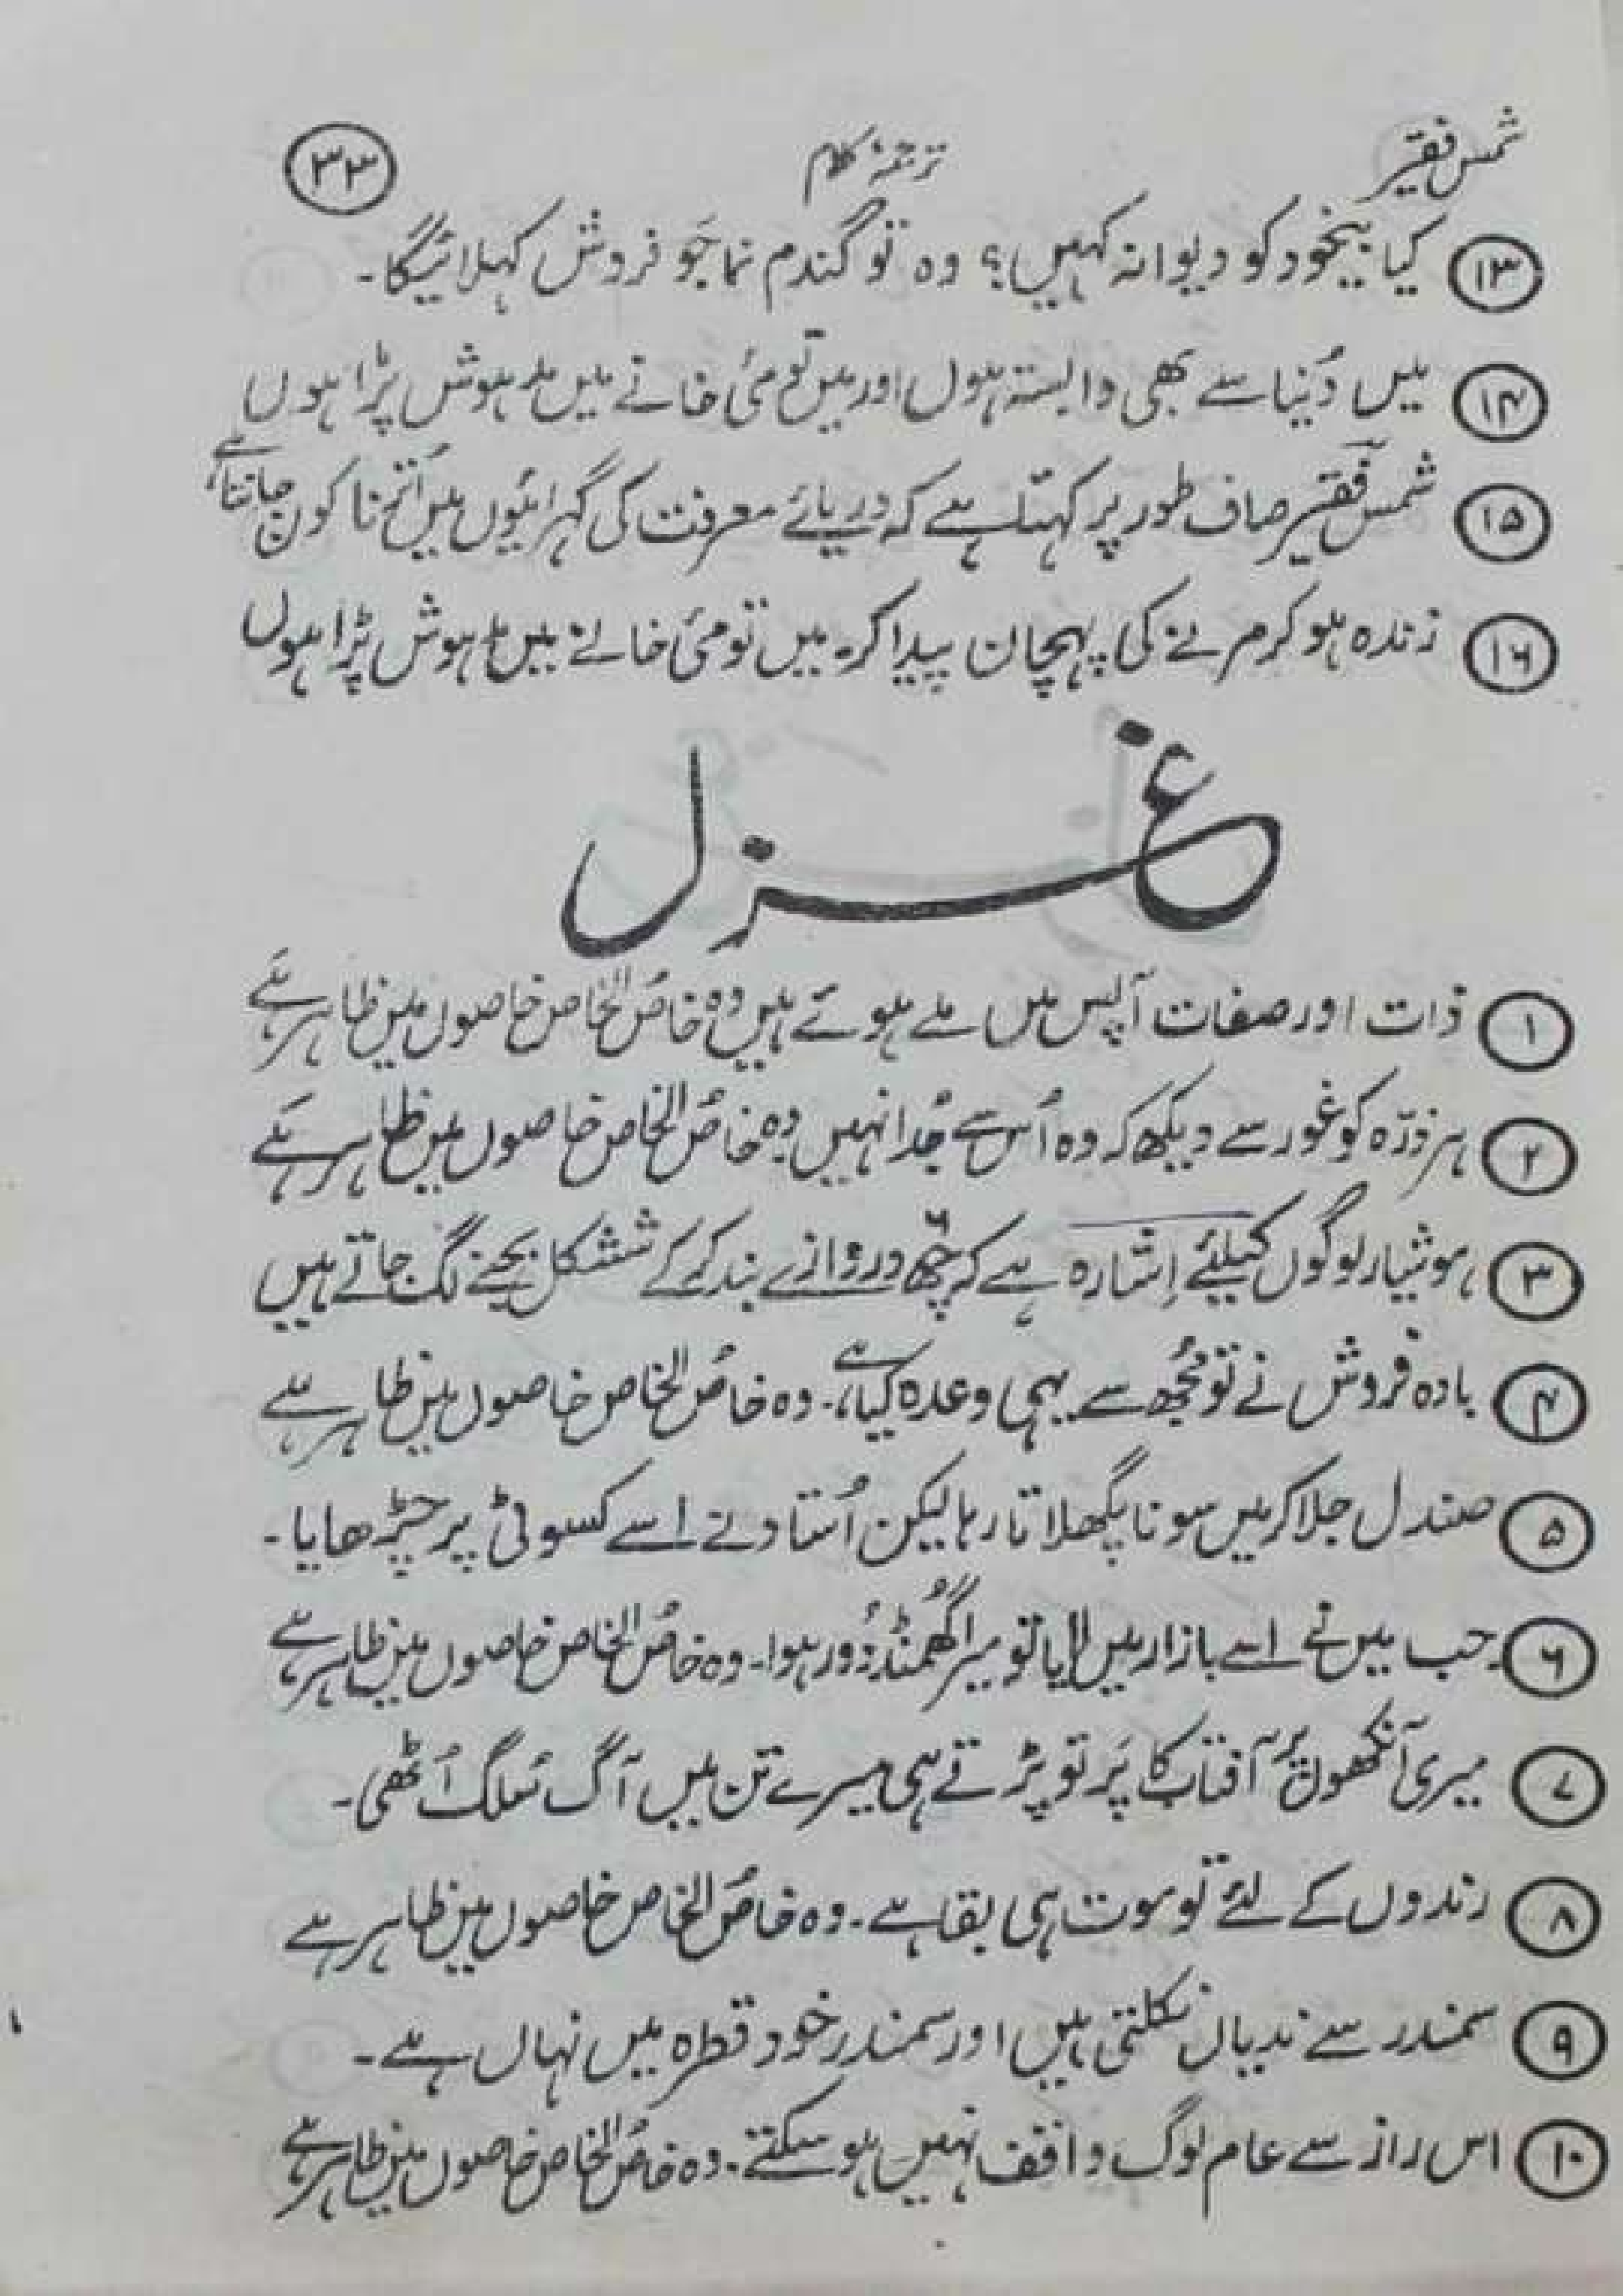 شمس فقیر ترجمۂ کلام ۳۳
۱۳ کیا بیخود کو دیوانہ کہیں؟ وہ تو گندم نما جَو فروش کہلائیگا۔
۱۴ میں دُنیا سے بھی وابستہ ہوں اور میں تو مئی خانے میں مدہوش پڑا ہوں
۱۵ شمس فقیر صاف طور پر کہتا ہے کہ دریائے معرفت کی گہرائیوں میں اُترنا کون جانتا ہے
۱۶ زندہ ہو کر مرنے کی پہچان پیدا کر۔ میں تو مئی خانے میں مدہوش پڑا ہوں
غزل
۱ ذات اور صفات آپس میں ملے ہوئے ہیں وہ خاصُ الخاص خاصوں میں ظاہر ہے
۲ ہر ذرّہ کو غور سے دیکھ کہ وہ اُس سے جُدا نہیں وہ خاصُ الخاص خاصوں میں ظاہر ہے
۳ ہوشیار لوگوں کیلئے اِشارہ ہے کہ چھ ۶ دروازے بند کر کے ششکل بجنے لگ جاتے ہیں
۴ بادہ فروش نے تو مُجھ سے یہی وعدہ کیا ہے۔ وہ خاصُ الخاص خاصوں میں ظاہر ہے
۵ صندل جلا کر میں سونا پگھلاتا رہا لیکن اُستاد نے اسے کسوٹی پر چڑھایا۔
۶ جب میں نے اسے بازار میں لایا تو میرا گھُمنڈ دُور ہوا۔ وہ خاصُ الخاص خاصوں میں ظاہر ہے
۷ میری آنکھوں پر آفتاب کا پَرتو پڑتے ہی میرے تن میں آگ سُلگ اُٹھی۔
۸ رندوں کے لئے تو موت ہی بقا ہے۔ وہ خاصُ الخاص خاصوں میں ظاہر ہے
۹ سمندر سے ندیاں نکلتی ہیں اور سمندر خود قطرہ میں نہاں ہے۔
۱۰ اس راز سے عام لوگ واقف نہیں ہو سکتے۔ وہ خاصُ الخاص خاصوں میں ظاہر ہے